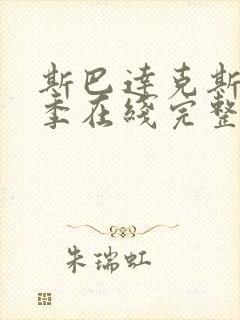 斯巴达克斯
季在线完整
朱瑞虹